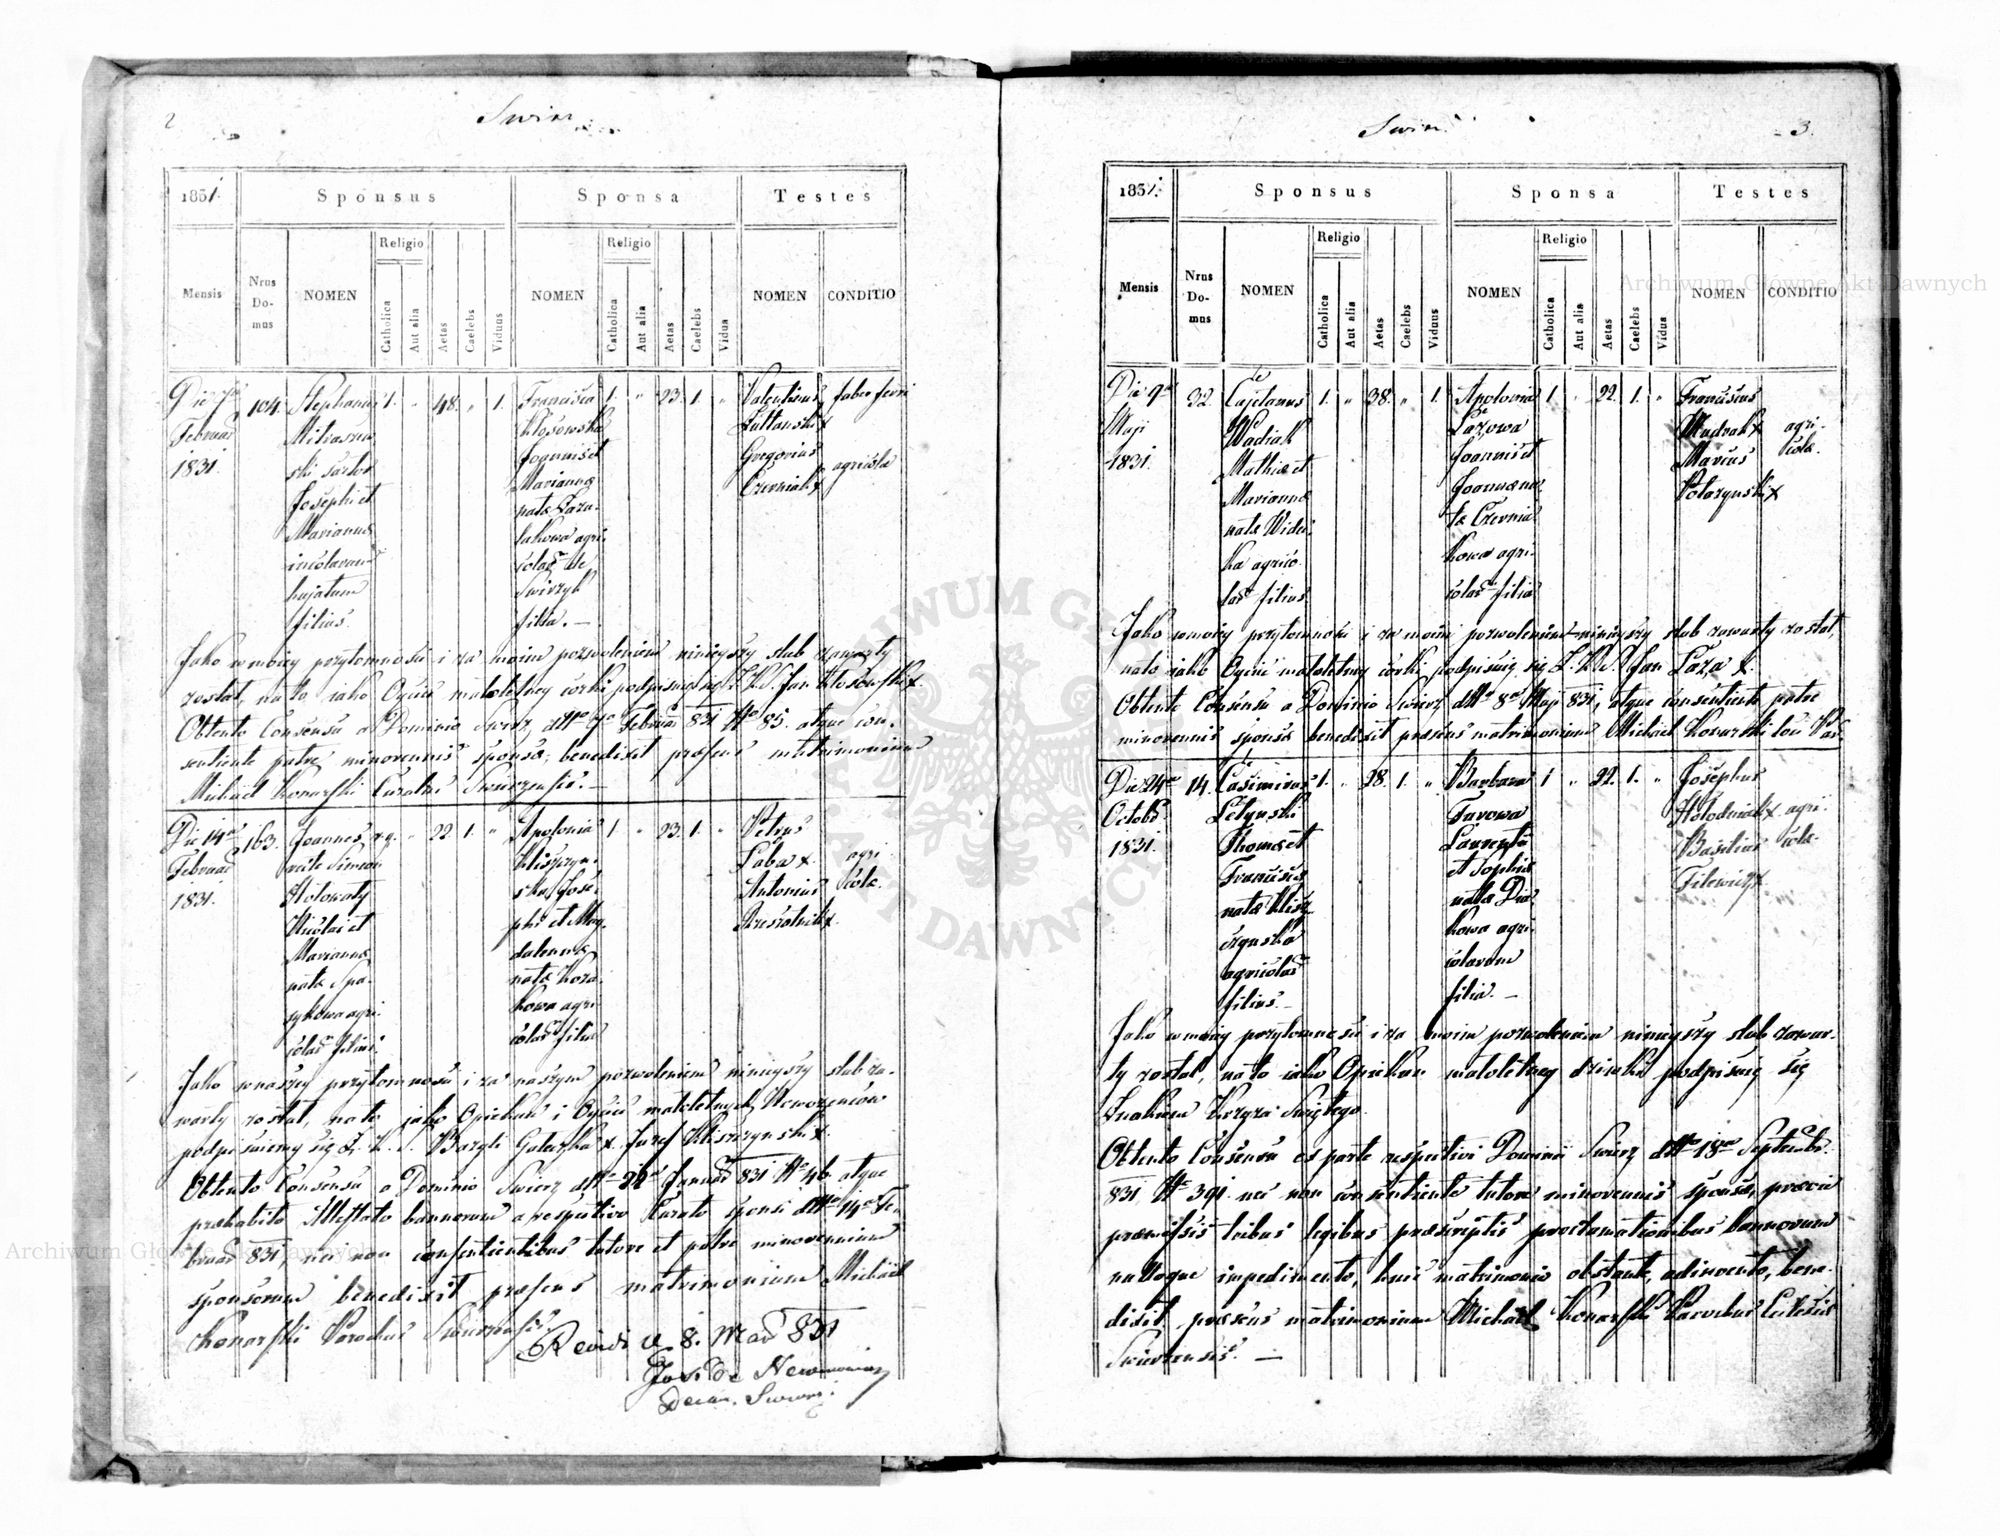 2
Swirz
1831.
Sponsus
Sponsa
Testes
Mensis
Nrus Domus
NOMEN
Religio
Catholica
Aut alia
Aetas
Caelebs
Viduus
NOMEN
Religio
Catholica
Aut alia
Aetas
Caelebs
Vidua
NOMEN
CONDITIO
Die 7a
Februar
1831.
104.
Stephanus
ski sartor
Josephi et
Mariannae
incolarum
hujatum
filius.
1.
"
48.
"
1.
Francisca
Kłosowska
Joannis et
Mariannae
natae Zara-
kowa agri-
colar de
Swirzyk
filia. —
1.
"
23.
1.
"
Valentinus
Gregorius
Czerniak x
faber ferri
agricola
Jako w moiey przytomności i za moim pozwoleniem ninieyszy slub zawarty
został, na to, iako Oyciec małoletney córki podpisuię się Z. K. S. Jan Kłosowski x.
Obtento Consensu a Dominio Swirz ddto 7a Februar 831 No 85. atque con-
sentiente patre minorennis sponsae, benedixit praesens matrimonium
Michael Konarski Curatus Swirzensis. —
Die 14a
Februar
1831.
163.
Joannes
Hołowaty
Nicolai et
Mariannae
natae Spa-
sykowa agri-
colar filius.
r. g.
"
22.
1.
"
Apolonia
Kliszczyn-
ska Jose-
phi et Mag-
dalennae
natae Kozа-
kowa agri-
colar filia
1.
"
23.
1.
"
Petrus
Łaba x.
Antonius
agri-
colae.
Jako w naszey przytomności i za naszym pozwoleniem ninieyszy slub za-
warty został, na to jako Opiekun i Oyciec małoletnych Nowożeńców
podpisuiemy się Z. K. S. Bazyli x. Jozef Kliszczynski x.
Obtento Consensu a Dominio Swierz ddto 22a Januar 831 No 46. atque
prehabito Attestato bannorum a respectivo Curato sponsi ddto 14a Fe-
bruar 831, nec non consentientibus tutore et patre minorennium
sponsorum benedixit praesens matrimonium Michael
Konarski Parochus Swirzensis
Revidi d. 8. Mar 831
Decan. Swirz.
Swirz.
3.
1831.
Sponsus
Sponsa
Testes
Mensis
Nrus Domus
NOMEN
Religio
Catholica
Aut alia
Aetas
Caelebs
Viduus
NOMEN
Religio
Catholica
Aut alia
Aetas
Caelebs
Vidua
NOMEN
CONDITIO
Die 9a
Maji
1831.
32.
Cajetanus
Wadiak
Mathiae et
Mariannae
natae Wider-
ka agrico-
lar filius.
1.
"
38.
"
1.
Apolonia
Łazowa
Joannis et
Joannae na-
tae Czernia-
kowa agri-
colar filia
1
"
22.
1.
"
Franciscus
Madrak x
Marcus
agri-
colae.
Jako w moiey przytomności i za moim pozwoleniem ninieyszy slub zawarty został,
na to iako Oyciec małoletney córki podpisuię się Z. K. S. Jan Łaza x.
Obtento Consensu a Dominio Swierz ddto 8a Maji 831, atque consentiente patre
minorennis sponsae benedixit praesens matrimonium Michael Konarski loci Par.
Die 24a
Octobr.
1831.
14.
Casimirus
Letynski
Thomae et
Franciscae
natae Klisz-
czynska
agricolar
filius. —
1.
"
28.
1.
"
Barbara
Turowa
Laurentii
et Sophiae
natae Dia-
kowa agri-
colarum
filia. —
1
"
22.
1.
"
Josephus
Hołodniak x
Basilius
Tilewicz x
agri-
colae.
Jako w moiey przytomności i za moim pozwoleniem ninieyszy slub zawar-
ty został, na to iako Opiekun małoletney dziewki podpisuię się
Znakiem Krzyża Swiętego.
Obtento Consensu ex parte respectivi Dominii Swierz ddto 18a Septembr.
831, No 391. nec non consentiente tutore minorennis sponsae, praevie
praemissis tribus legibus praescriptis proclamationibus bannorum
nulloque impedimento, huic matrimonio obstante, adinvento, bene-
dixit praesens matrimonium Michael Konarski Parochus Ecclesiae
Swirzensis. —
Archiwum Główne Akt Dawnych
Archiwum Główne Akt Dawnych
ARCHIWUM GŁÓWNE AKT DAWNYCH